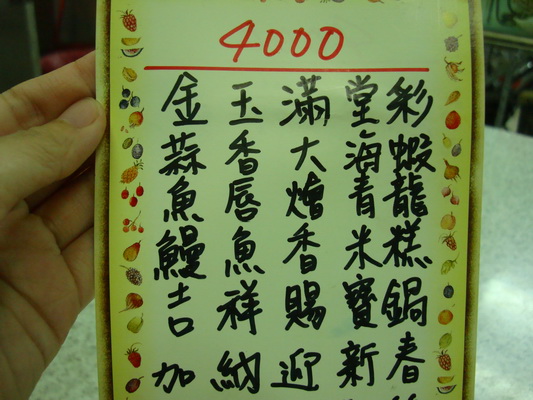 4000
金玉滿堂彩
蒜香大海蝦
魚唇燴青龍
鰻魚香米糕
吉祥賜寶鍋
加納迎新春